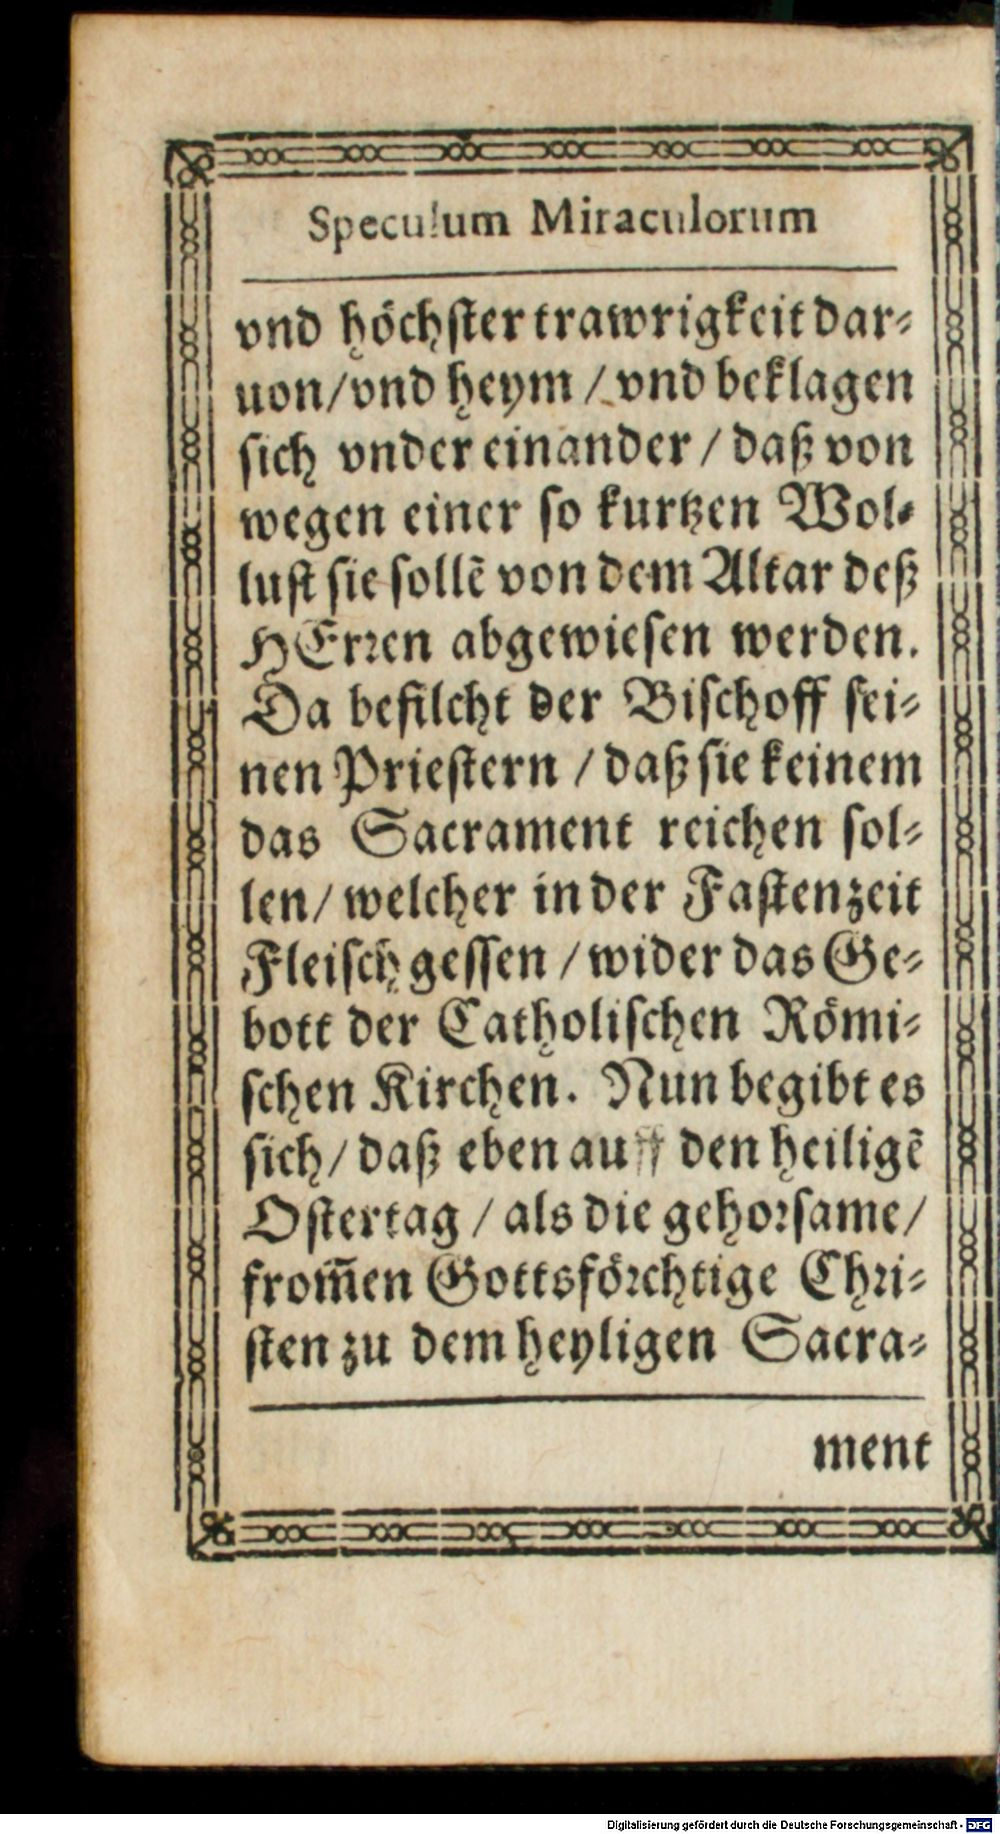 Speculum Miraculorum
vnd höchster trawrigkeit dar-
uon/vnd heym / vnd beklagen
sich vnder einander / daß von
wegen einer so kurtzen Wol-
lust sie sollē von dem Altar deß
HErren abgewiesen werden.
Da befilcht der Bischoff sei-
nen Priestern / daß sie keinem
das Sacrament reichen sol-
len/ welcher in der Fastenzeit
Fleisch gessen / wider das Ge-
bott der Catholischen Römi-
schen Kirchen. Nun begibt es
sich/ daß eben auff den heiligē
Ostertag / als die gehorsame/
from̅en Gottsförchtige Chri-
sten zu dem heyligen Sacra-
ment
Digitalisierung gefördert durch die Deutsche Forschungsgemeinschaft - DFG